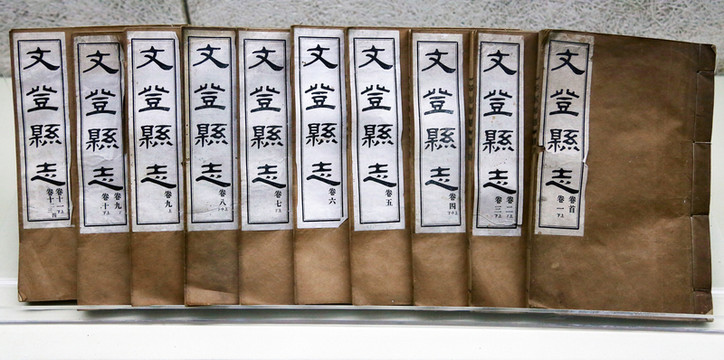 文登縣志 卷首 卷一上下
文登縣志 卷二上下 卷三上下
文登縣志 卷四
文登縣志 卷五
文登縣志 卷六
文登縣志 卷七
文登縣志 卷八
文登縣志 卷九上
文登縣志 卷九下 卷十上下
文登縣志 卷十一 卷十